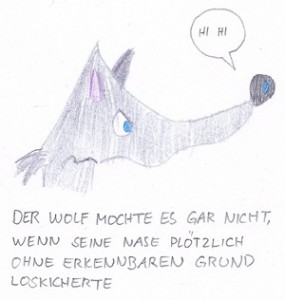 HI HI
DER WOLF MOCHTE ES GAR NICHT,
WENN SEINE NASE PLÖTZLICH
OHNE ERKENNBAREN GRUND
LOSKICHERTE